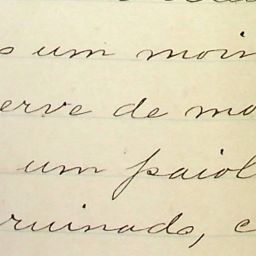 s um moin
erve de mo
um paiol
rruinado, c